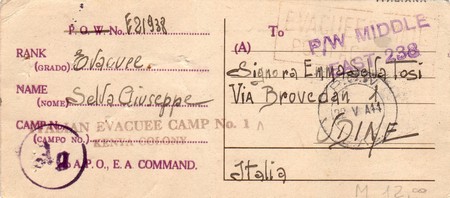 P.O.W. No. E21938
RANK
(GRADO) Evacuee.
NAME
(NOME) Selva Giuseppe
CAMP No.
(CAMPO No.)
ITALIAN EVACUEE CAMP No. 1
KENYA COLONY
A.P.O., E.A. COMMAND.
EVACUEE
To
P/W MIDDLE
EAST 238
(A)
Signora Emma Tosi
Via Brovedan 1
UDINE
Italia
M 12,00